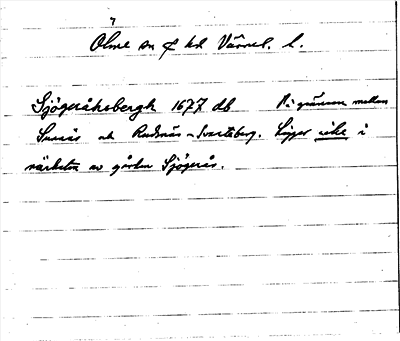 Ölme sn o hd Värml. l.
Sjögeråhsbergh 1677 db På gränsen mellan
och Rudsnäs - Svartåberg. Ligger icke i
närheten av gården Sjögerås.